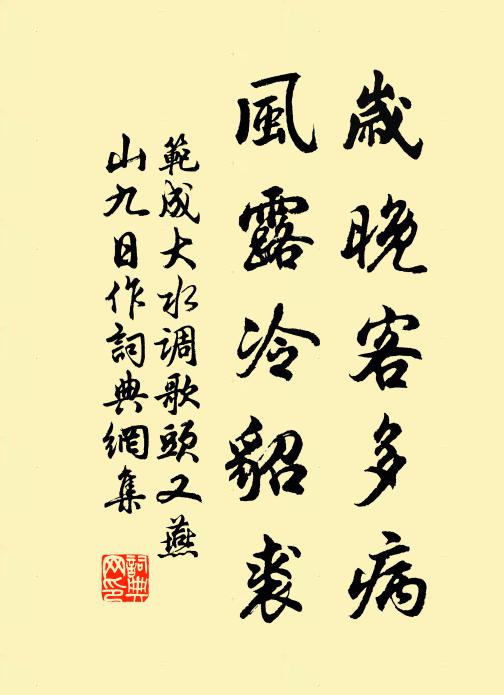 歲晚客多病
風露冷貂裘
範成大水调歌頭又燕
山九日作詞典網集
詞典
网印